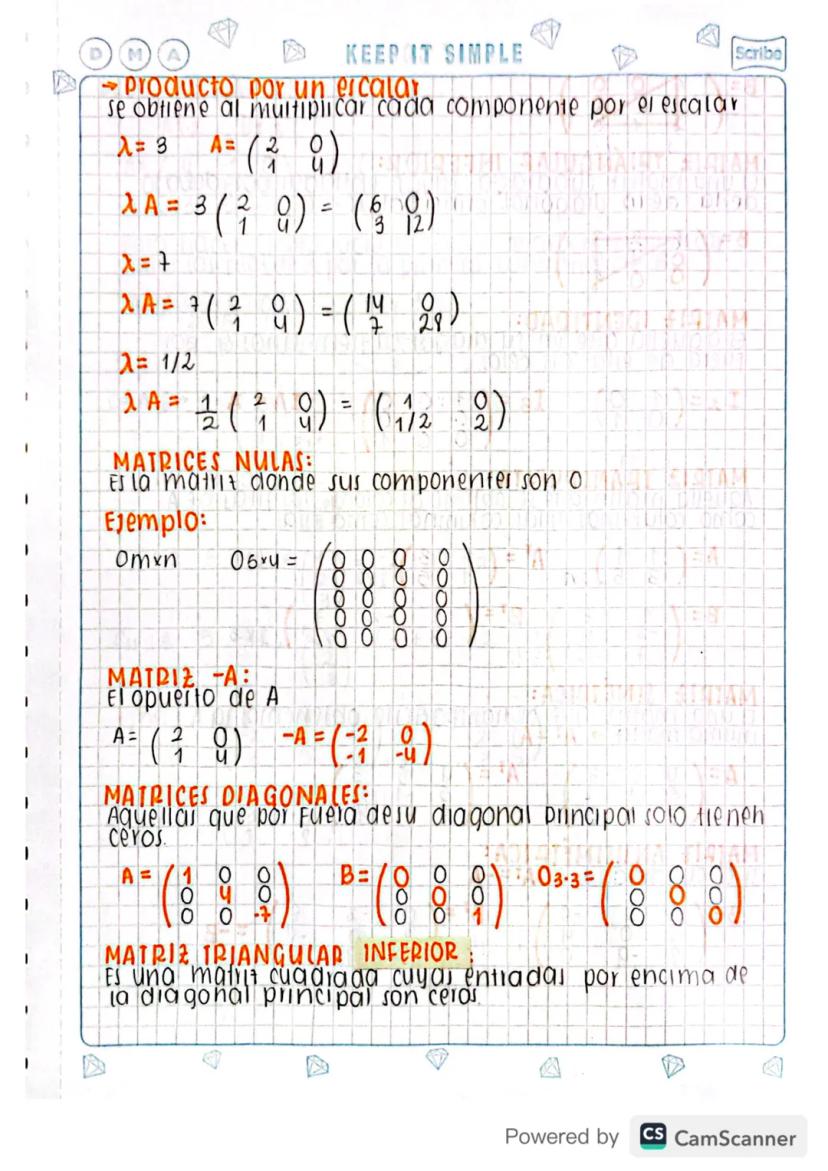 D M A KEEP IT SIMPLE Scribe
→ Producto por un escalar
se obtiene al multiplicar cada componente por el escalar
λ= 3 A= (2 0
1 4)
λ A = 3 (2 0
1 4) = (6 0
3 12)
λ= 7
λ A= 7 (2 0
1 4) = (14 0
7 28)
λ= 1/2
λ A = 1/2 (2 0
1 4) = (1 0
1/2 2)
MATRICES NULAS:
Es la matriz donde sus componentes son 0
Ejemplo:
0m×n 06×4 = (0 0 0 0
0 0 0 0
0 0 0 0
0 0 0 0
0 0 0 0)
MATRIZ -A:
El opuesto de A
A= (2 0
1 4) -A = (-2 0
-1 -4)
MATRICES DIAGONALES:
Aquellas que por fuera de su diagonal principal solo tienen
ceros.
A = (1 0 0
0 4 0
0 0 -7) B= (0 0 0
0 0 0
0 0 1) 03·3= (0 0 0
0 0 0
0 0 0)
MATRIZ TRIANGULAR INFERIOR:
Es una matriz cuadrada cuyas entradas por encima de
la diagonal principal son ceros.
Powered by CS CamScanner